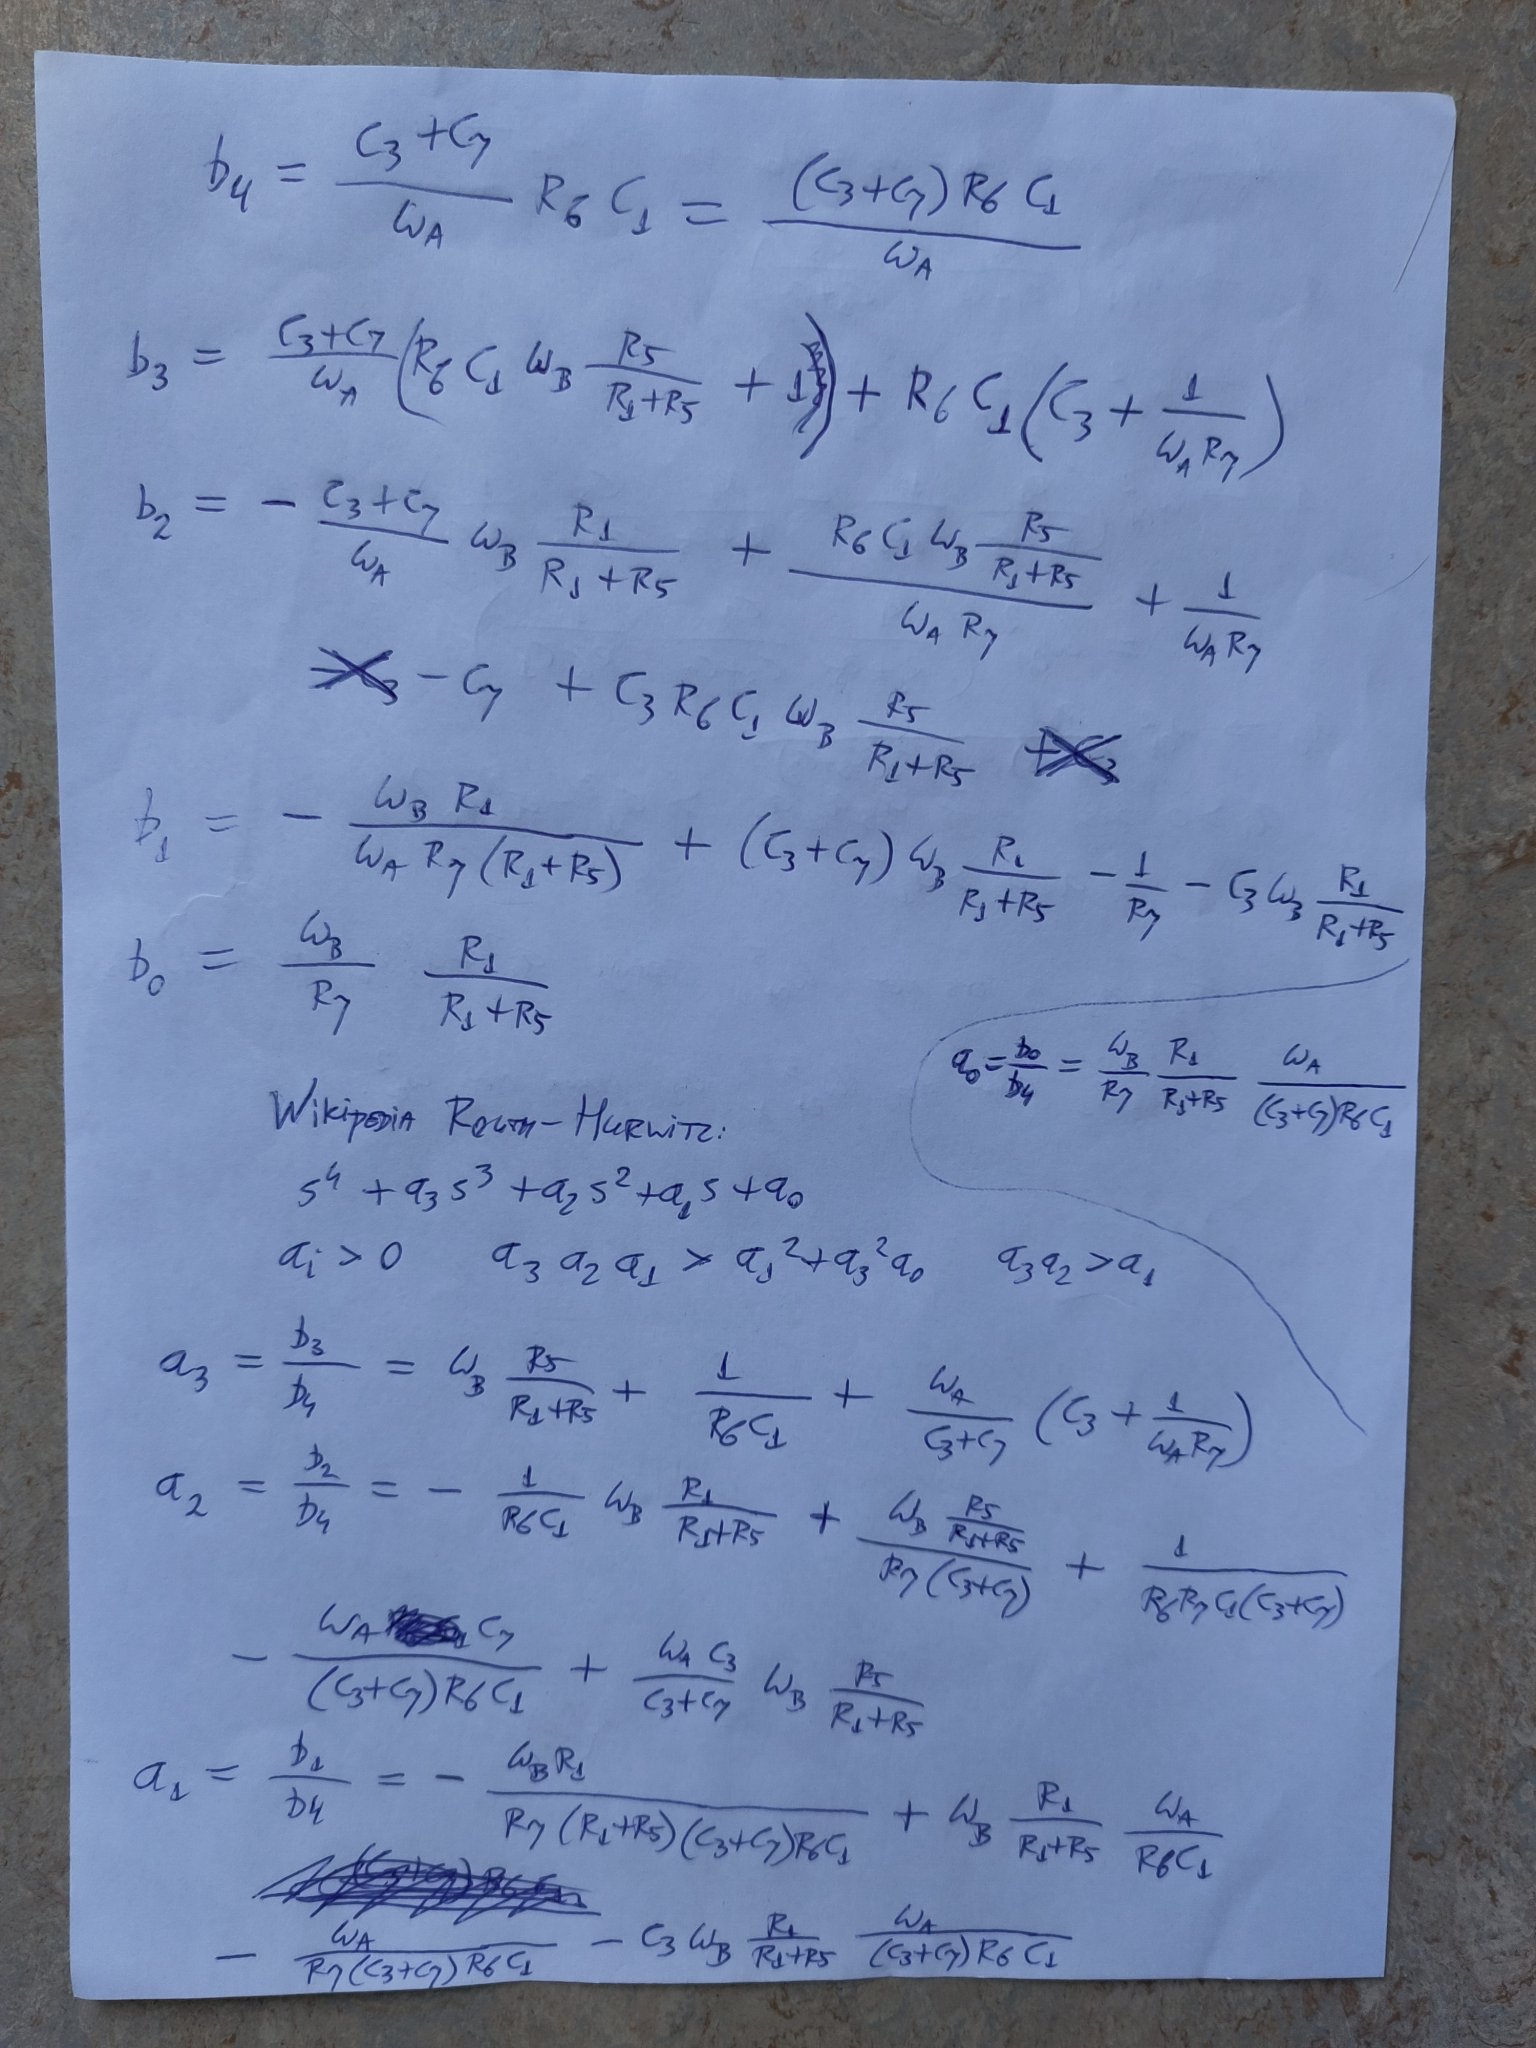 b₄ = (C₃+C₇)/ω_A R₆ C₁ = ((C₃+C₇) R₆ C₁)/ω_A
b₃ = (C₃+C₇)/ω_A (R₆ C₁ ω_B R₅/(R₁+R₅) + 1) + R₆ C₁ (C₃ + 1/(ω_A R₇))
b₂ = - (C₃+C₇)/ω_A ω_B R₁/(R₁+R₅) + (R₆ C₁ ω_B R₅/(R₁+R₅))/(ω_A R₇) + 1/(ω_A R₇)
- C₇ + C₃ R₆ C₁ ω_B R₅/(R₁+R₅)
b₁ = - (ω_B R₁)/(ω_A R₇ (R₁+R₅)) + (C₃+C₇) ω_B R₁/(R₁+R₅) - 1/R₇ - C₃ ω_B R₁/(R₁+R₅)
b₀ = ω_B/R₇ R₁/(R₁+R₅)
a₀ = b₀/b₄ = ω_B/R₇ R₁/(R₁+R₅) ω_A/((C₃+C₇)R₆C₁)
Wikipedia Routh-Hurwitz:
s⁴ + a₃s³ + a₂s² + a₁s + a₀
aᵢ > 0 a₃ a₂ a₁ > a₁² + a₃²a₀ a₃a₂ > a₁
a₃ = b₃/b₄ = ω_B R₅/(R₁+R₅) + 1/(R₆C₁) + ω_A/(C₃+C₇) (C₃ + 1/(ω_A R₇))
a₂ = b₂/b₄ = - 1/(R₆C₁) ω_B R₁/(R₁+R₅) + (ω_B R₅/(R₁+R₅))/(R₇(C₃+C₇)) + 1/(R₆R₇C₁(C₃+C₇))
- (ω_A C₇)/((C₃+C₇)R₆C₁) + (ω_A C₃)/(C₃+C₇) ω_B R₅/(R₁+R₅)
a₁ = b₁/b₄ = - (ω_B R₁)/(R₇(R₁+R₅)(C₃+C₇)R₆C₁) + ω_B R₁/(R₁+R₅) ω_A/(R₆C₁)
- ω_A/(R₇(C₃+C₇)R₆C₁) - C₃ω_B R₁/(R₁+R₅) ω_A/((C₃+C₇)R₆C₁)